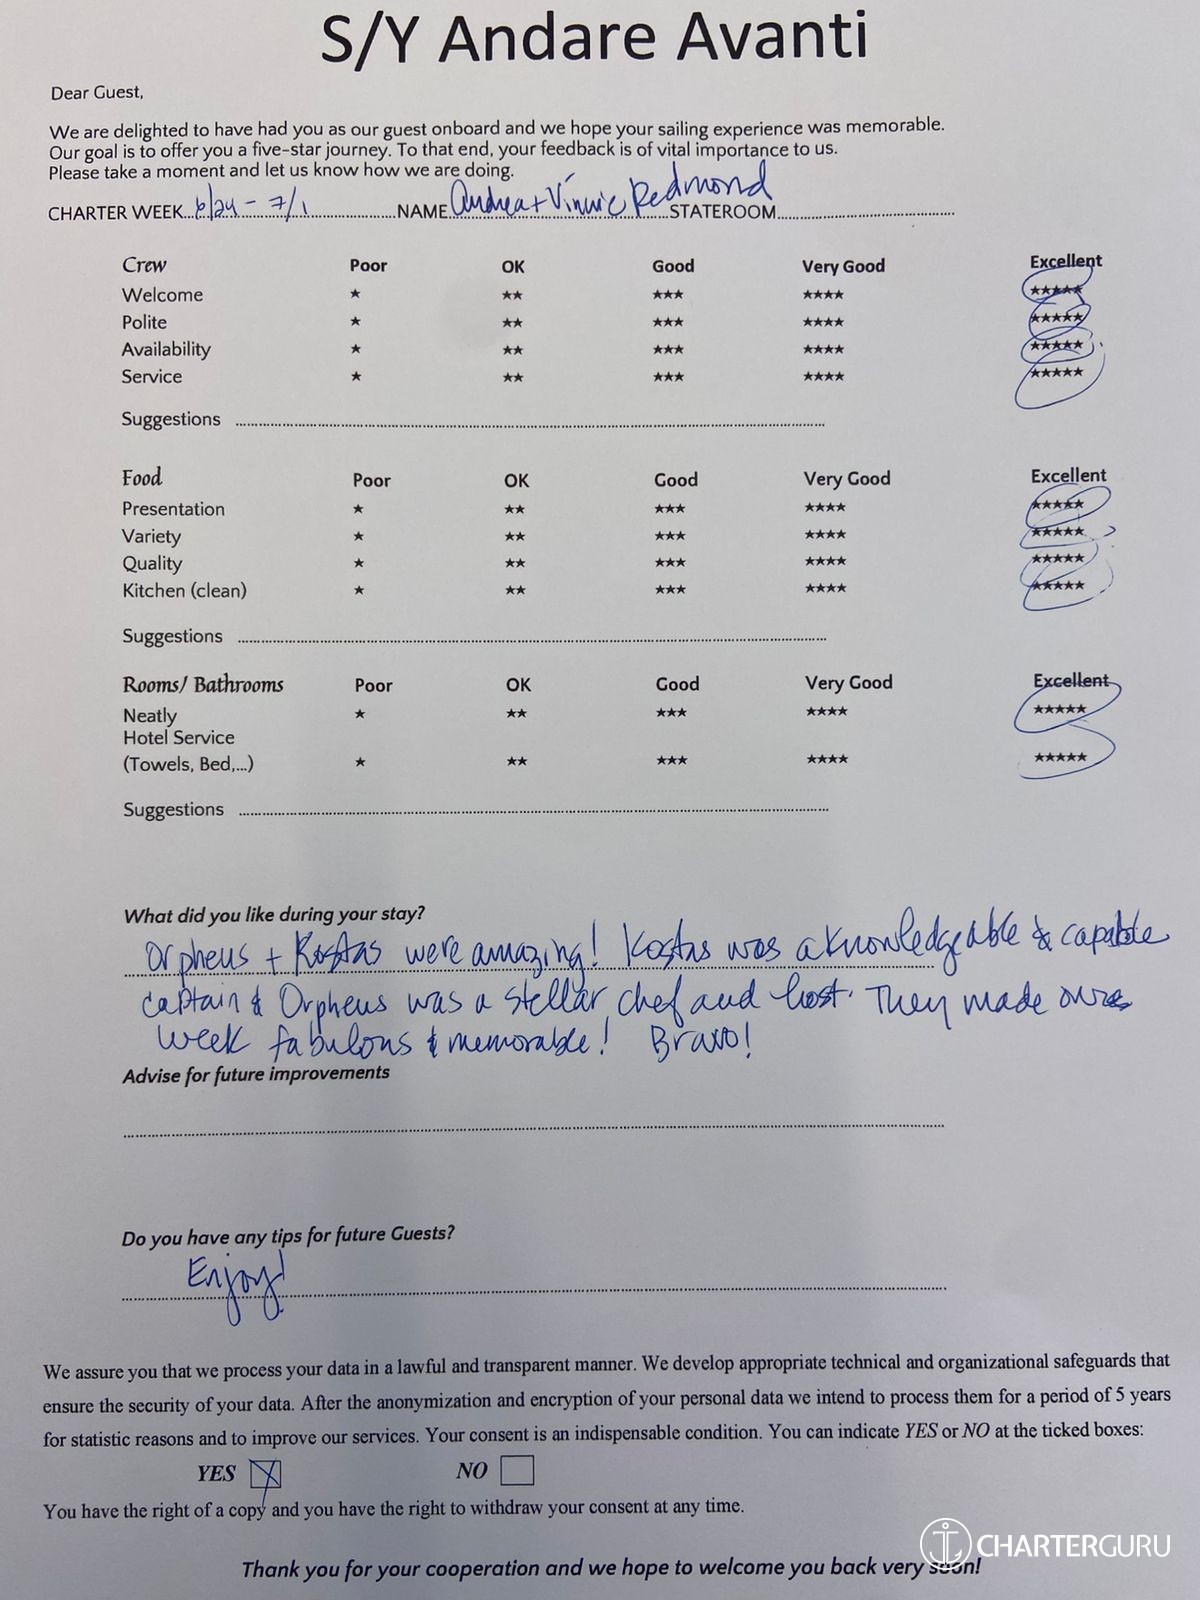 S/Y Andare Avanti
Dear Guest,
We are delighted to have had you as our guest onboard and we hope your sailing experience was memorable.
Our goal is to offer you a five-star journey. To that end, your feedback is of vital importance to us.
Please take a moment and let us know how we are doing.
CHARTER WEEK 6/24 - 7/1 NAME Andrea + Vinnie Redmond STATEROOM
Crew Poor OK Good Very Good Excellent
Welcome ★ ★★ ★★★ ★★★★ ★★★★★
Polite ★ ★★ ★★★ ★★★★ ★★★★★
Availability ★ ★★ ★★★ ★★★★ ★★★★★
Service ★ ★★ ★★★ ★★★★ ★★★★★
Suggestions
Food Poor OK Good Very Good Excellent
Presentation ★ ★★ ★★★ ★★★★ ★★★★★
Variety ★ ★★ ★★★ ★★★★ ★★★★★
Quality ★ ★★ ★★★ ★★★★ ★★★★★
Kitchen (clean) ★ ★★ ★★★ ★★★★ ★★★★★
Suggestions
Rooms/ Bathrooms Poor OK Good Very Good Excellent
Neatly ★ ★★ ★★★ ★★★★ ★★★★★
Hotel Service
(Towels, Bed,...) ★ ★★ ★★★ ★★★★ ★★★★★
Suggestions
What did you like during your stay?
Orpheus + Kostas were amazing! Kostas was a knowledgeable & capable
captain & Orpheus was a stellar chef and host. They made our
week fabulous & memorable! Bravo!
Advise for future improvements
Do you have any tips for future Guests?
Enjoy!
We assure you that we process your data in a lawful and transparent manner. We develop appropriate technical and organizational safeguards that
ensure the security of your data. After the anonymization and encryption of your personal data we intend to process them for a period of 5 years
for statistic reasons and to improve our services. Your consent is an indispensable condition. You can indicate YES or NO at the ticked boxes:
YES NO
You have the right of a copy and you have the right to withdraw your consent at any time.
CHARTERGURU
Thank you for your cooperation and we hope to welcome you back very soon!